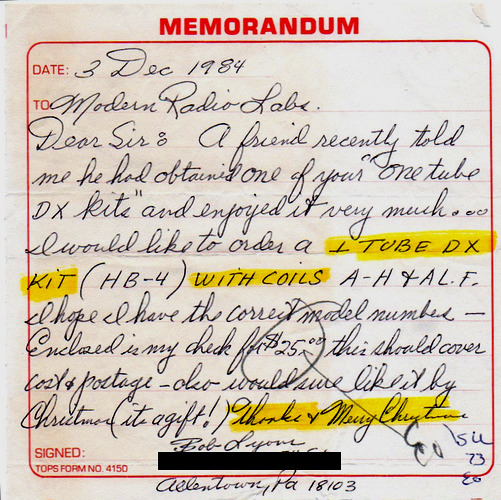 MEMORANDUM
DATE: 3 Dec 1984
TO Modern Radio Labs.
Dear Sir: A friend recently told
me he had obtained one of your "one tube
DX kits" and enjoyed it very much...
I would like to order a 1 TUBE DX
KIT (HB-4) WITH COILS A-H & A L.F.
I hope I have the correct model number —
Enclosed is my check for $25.00 this should cover
cost & postage - also would sure like it by
Christmas (its a gift!) Thanks & Merry Christmas
SIGNED: Bob Lyons
TOPS FORM NO. 4150
Allentown, Pa 18103
73